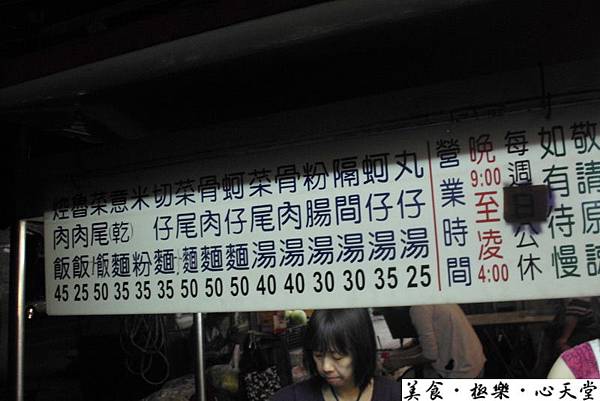 焢肉飯 45
魯肉飯 25
菜尾飯 50
意(乾)麵 35
米粉 35
切仔麵 35
菜尾麵 50
骨肉麵 50
蚵仔麵 50
菜尾湯 40
骨肉湯 40
粉腸湯 30
隔間湯 30
蚵仔湯 35
丸仔湯 25
營業時間
晚9:00至凌4:00
每週日公休
如有待慢
敬請原諒
美食‧極樂‧心天堂